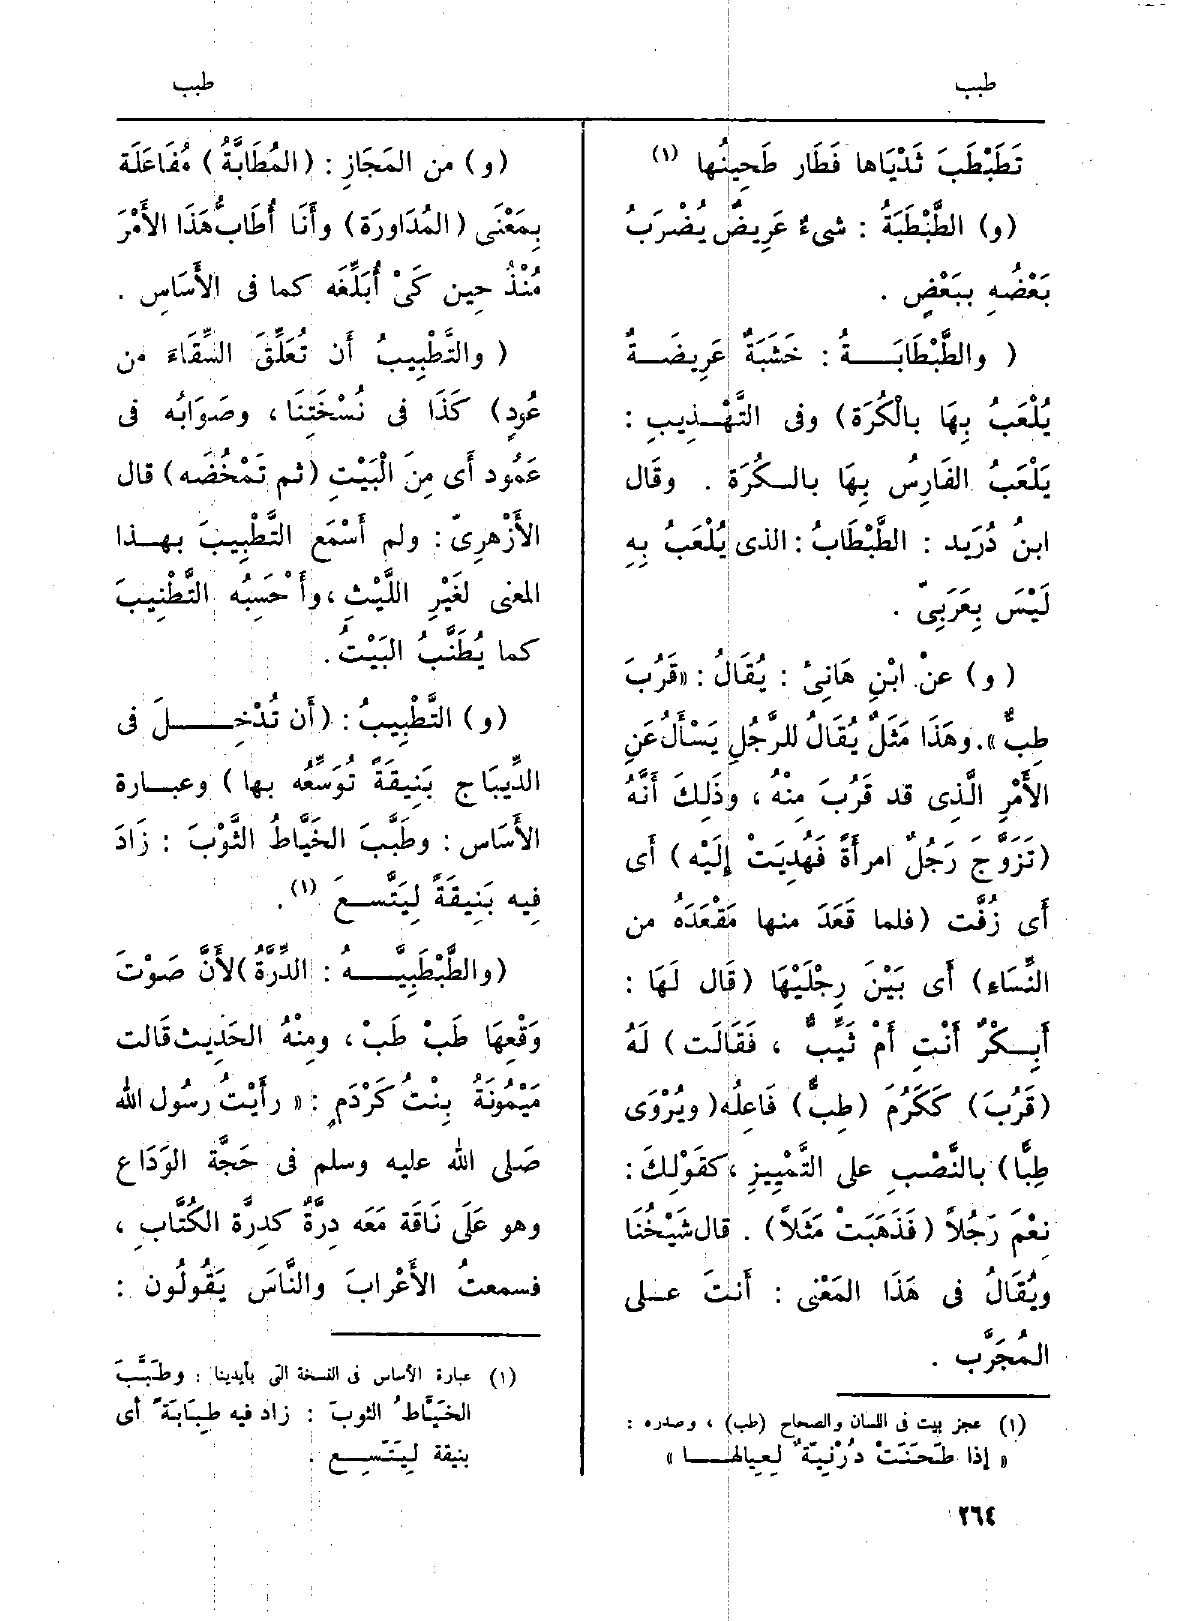 طبب
طبب
تَطَبْطَبَ ثَدْيَاها فَطَار طَحِينُها (١)
(و) الطَّبْطَبَةُ : شىءٌ عَرِيضٌ يُضْرَبُ
بَعْضُه بِبَعْضٍ .
( والطَّبْطَابَـــةُ : خَشَبَةٌ عَرِيضَــةٌ
يُلْعَبُ بِهَا بالْكُرَة) وفى التَّهْـذِيبِ :
يَلْعَبُ الفَارِسُ بِهَا بالـكُرَة . وقَال
ابنُ دُرَيد : الطَّبْطَابُ : الذى يُلْعَبُ بِهِ
لَيْسَ بِعَرَبِىّ .
( و) عنْ ابْنِ هَانِئ : يُقَالُ : «قَرُبَ
طِبٌّ». وهَذَا مَثَلٌ يُقَالُ للرَّجُلِ يَسْأَلُ عَنِ
الأَمْرِ الَّذِى قد قَرُبَ مِنْهُ ، وذَلِكَ أَنَّهُ
(تَزَوَّجَ رَجُلٌ امرأَةً فَهُدِيَتْ إِلَيْه) أَى
أَى زُفَّت (فلما قَعَدَ منها مَقْعَدَهُ من
النِّسَاءِ) أَى بَيْنَ رِجْلَيْهَا (قَال لَهَا :
أَبِـكْرٌ أَنْتِ أَمْ ثَيِّبٌ ، فَقَالَت) لَهُ
(قَرُبَ) كَكَرُمَ (طِبٌّ) فَاعِلُه (ويُرْوَى
طِبًّا) بالنَّصْبِ على التَّمْيِيزِ ، كقَوْلِكَ :
نِعْمَ رَجُلاً (فَذَهَبَتْ مَثَلاً) . قال شَيْخُنَا
ويُقَالُ فى هَذَا المَعْنى : أَنتَ عـلى
المُجَرَّب .
(١) عجز بيت فى اللسان والصحاح (طب) ، وصدره :
« إذا طَحَنَتْ دُرْنِيّةٌ لِعِيالهــا »
٢٦٤
(و) من المَجَازِ : (المُطَابَّةُ) مُفَاعَلَة
بِمَعْنَى (المُدَاوَرَة) وأَنَا أُطَابُّ هَذَا الأَمْرَ
مُنْذُ حِين كَىْ أُبَلِّغَه كما فى الأَسَاسِ .
( والتَّطْبِيبُ أَن تُعَلِّقَ السِّقَاءَ من
عُودٍ) كَذَا فى نُسْخَتِنَا ، وصَوَابُه فى
عَمُود أَى مِنَ الْبَيْتِ (ثم تَمْخُضَه) قال
الأَزْهرِىّ : ولم أَسْمَع التَّطْبِيبَ بهـذا
المعنى لغَيْرِ اللَّيْثِ ، وأَحْسِبُه التَّطْنِيبَ
كما يُطَنَّبُ البَيْتُ .
(و) التَّطْبِيبُ : (أَن تُدْخِـــلَ فى
الدِّيبَاج بَنِيقَةً تُوَسِّعُه بها) وعبـارة
الأَسَاس : وطَبَّبَ الخَيَّاطُ الثَّوْبَ : زَادَ
فِيه بَنِيقَةً لِيَتَّسعَ (١) .
(والطَّبْطَبِيَّــهُ : الدِّرَّةُ) لأَنَّ صَوْتَ
وَقْعِهَا طَبْ طَبْ ، ومِنْهُ الحَدِيث قَالت
مَيْمُونَةُ بِنْتُ كَرْدَمٍ : « رأَيْتُ رسُول الله
صَلى الله عليه وسلم فى حَجَّة الوَدَاع
وهو عَلَى نَاقَة مَعَه دِرَّةٌ كدِرَّة الكُتَّابِ ،
فسمعتُ الأَعْرابَ والنَّاسَ يَقُولُون :
(١) عبارة الأساس فى النسخة التى بأيدينا : وطَبَّبَ
الخَيَّاطُ الثوبَ : زاد فيه طِبَابَةً أى
بنيقة لِيَتّسِـع .